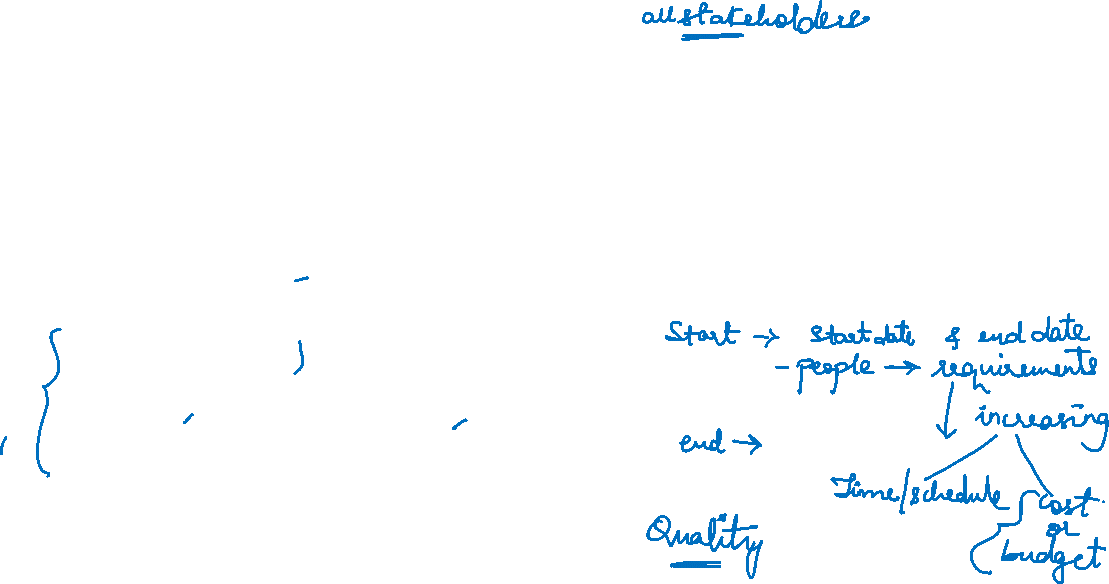 all stakeholders
Start → start date & end date
- people → requirements
increasing
end →
Time/schedule
cost
or
budget
Quality